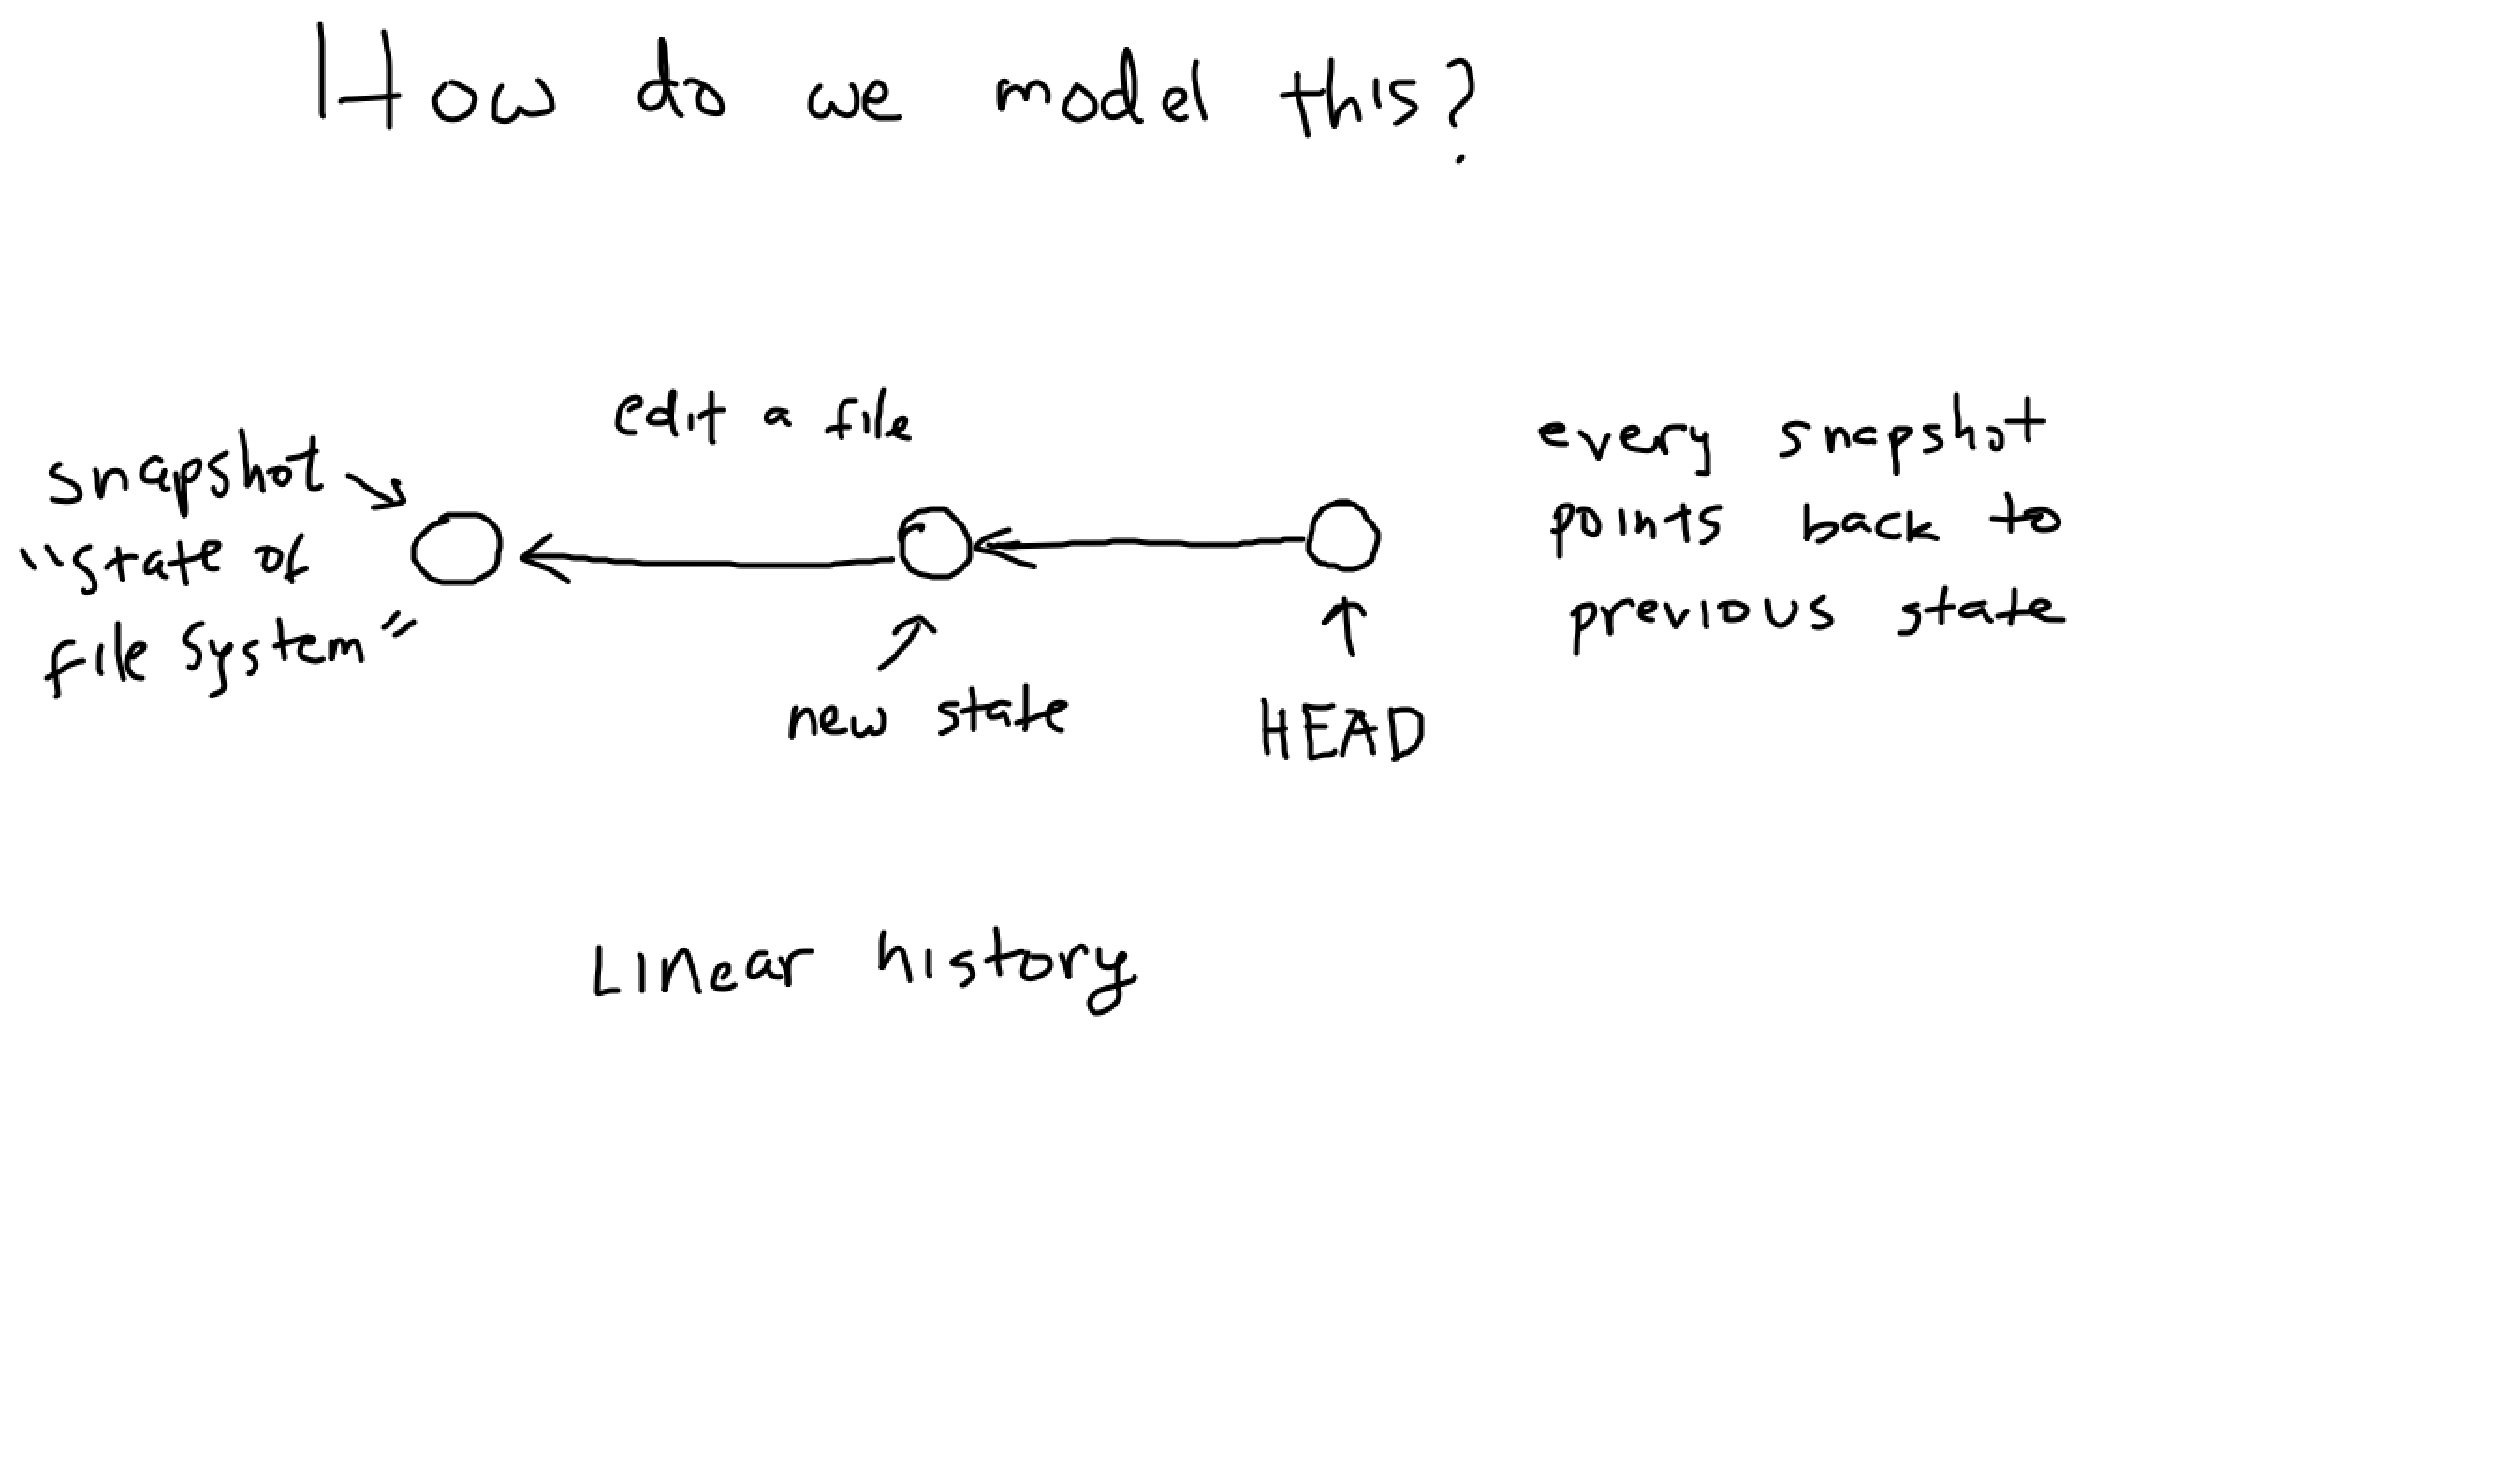 How do we model this?
edit a file
snapshot
"state of
file system"
new state
HEAD
every snapshot
points back to
previous state
Linear history